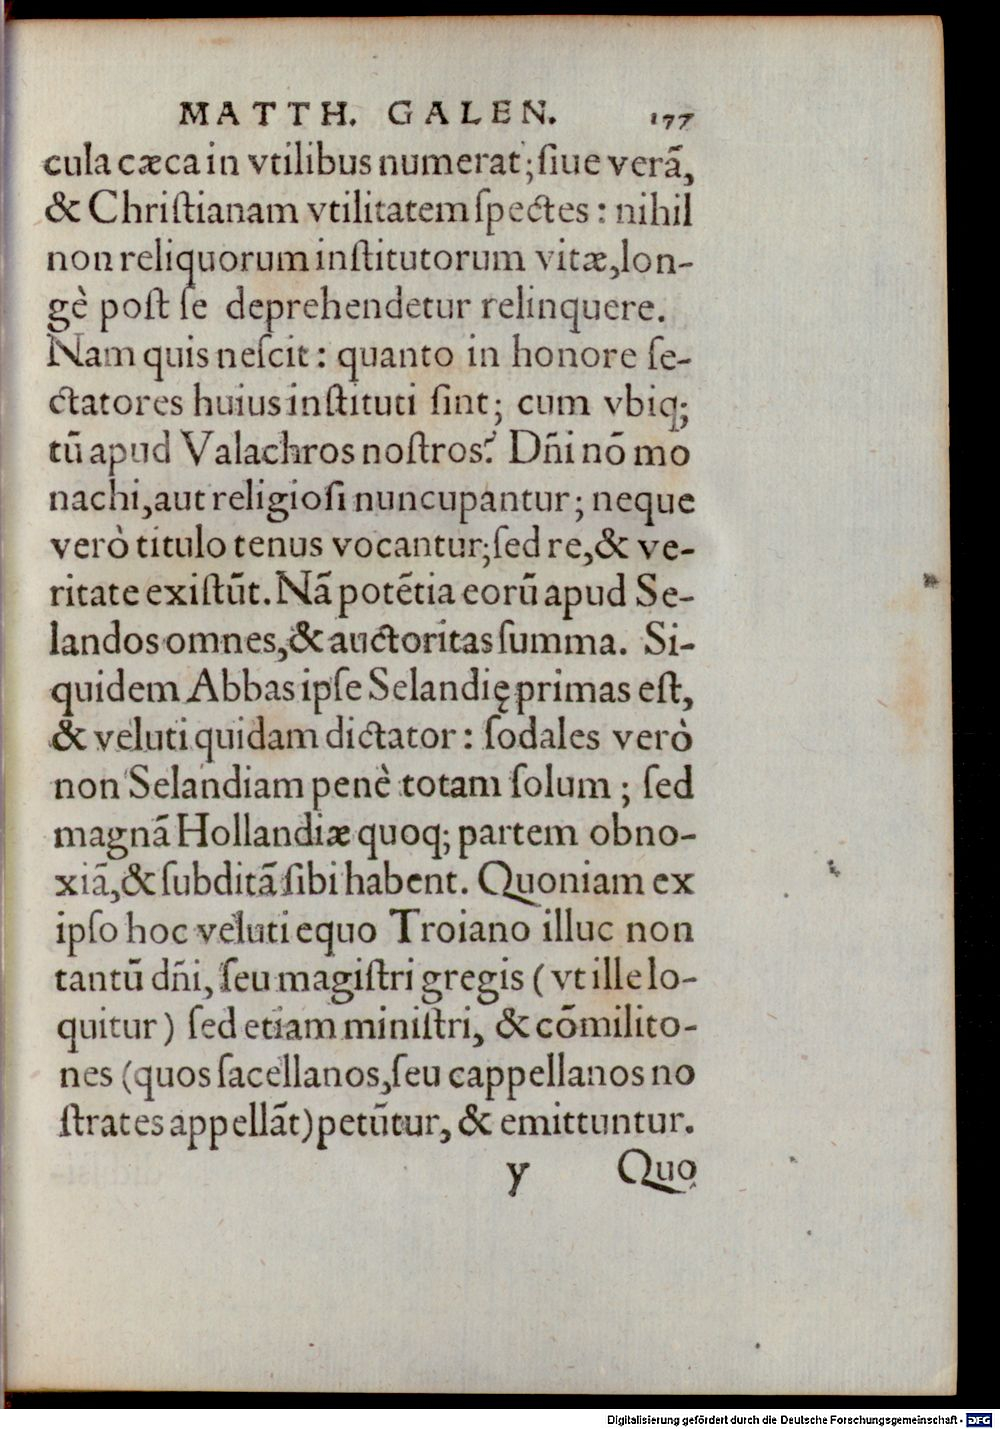 MATTH. GALEN. 177
cula cæca in vtilibus numerat; ſiue verā,
& Chriſtianam vtilitatem ſpectes: nihil
non reliquorum inſtitutorum vitæ, lon-
gè poſt ſe deprehendetur relinquere.
Nam quis neſcit: quanto in honore ſe-
ctatores huius inſtituti ſint; cum vbiq;
tū apud Valachros noſtros? Dn̄i nō mo
nachi, aut religioſi nuncupantur; neque
verò titulo tenus vocantur; ſed re, & ve-
ritate exiſtūt. Nā potētia eorū apud Se-
landos omnes, & auctoritas ſumma. Si-
quidem Abbas ipſe Selandię primas eſt,
& veluti quidam dictator: ſodales verò
non Selandiam penè totam ſolum; ſed
magnā Hollandiæ quoq; partem obno-
xiā, & ſubditā ſibi habent. Quoniam ex
ipſo hoc veluti equo Troiano illuc non
tantū dn̄i, ſeu magiſtri gregis (vt ille lo-
quitur) ſed etiam miniſtri, & cōmilito-
nes (quos ſacellanos, ſeu cappellanos no
ſtrates appellāt) petūtur, & emittuntur.
y Quo
Digitalisierung gefördert durch die Deutsche Forschungsgemeinschaft - DFG